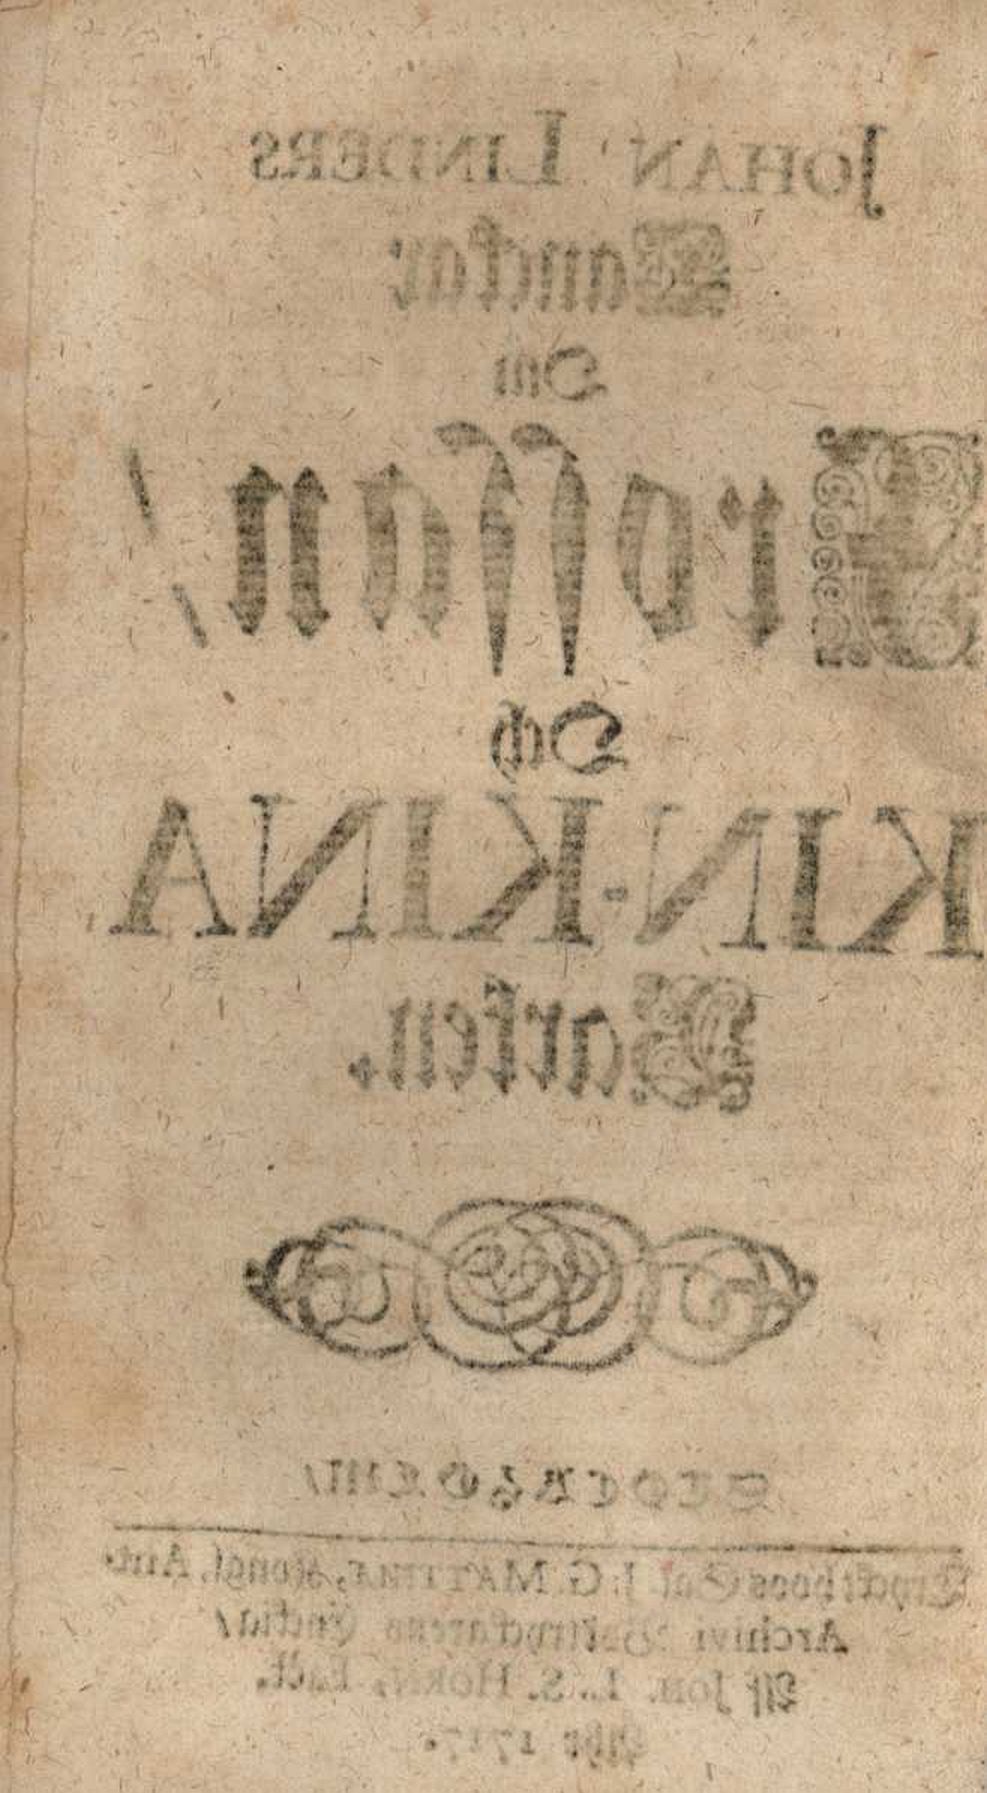 JOHAN LINDERS
Tanckar
Om
Frossan/
Och
KIN-KINA
Barken.
STOCKHOLM/
Tryckt hoos Sal. J. G. MATTHIÆ, Kongl. Ant.
Archivi Boktryckarens Enckia/
Af JOH. L. HORN, Fact.
Åhr 1717.